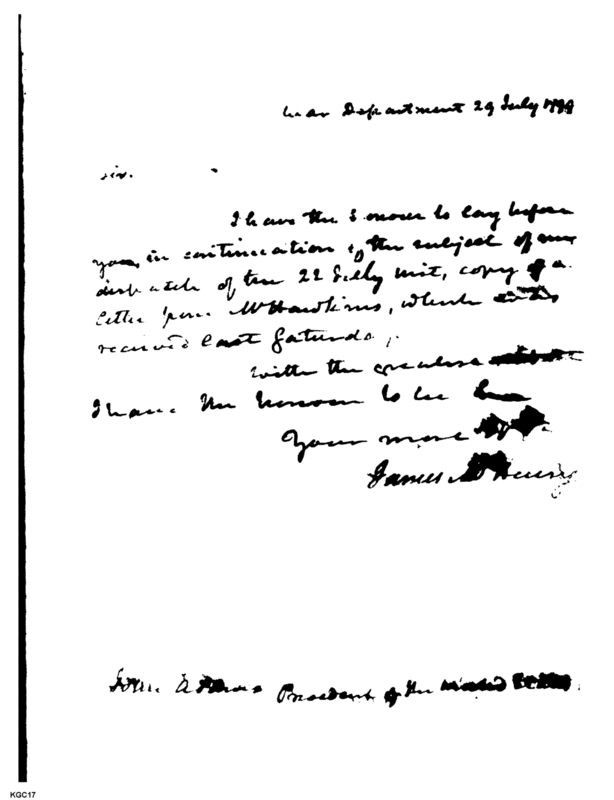 War Department 29 July 1799
Sir.
I have the honour to lay before
you, in continuation of the subject of my
dispatch of the 22 July inst, copy of a
letter from Mr Hawkins, which
received last Saturday.
With the greatest
I have the honour to be
Your most
James McHenry
John Adams President of the United States
KGC17